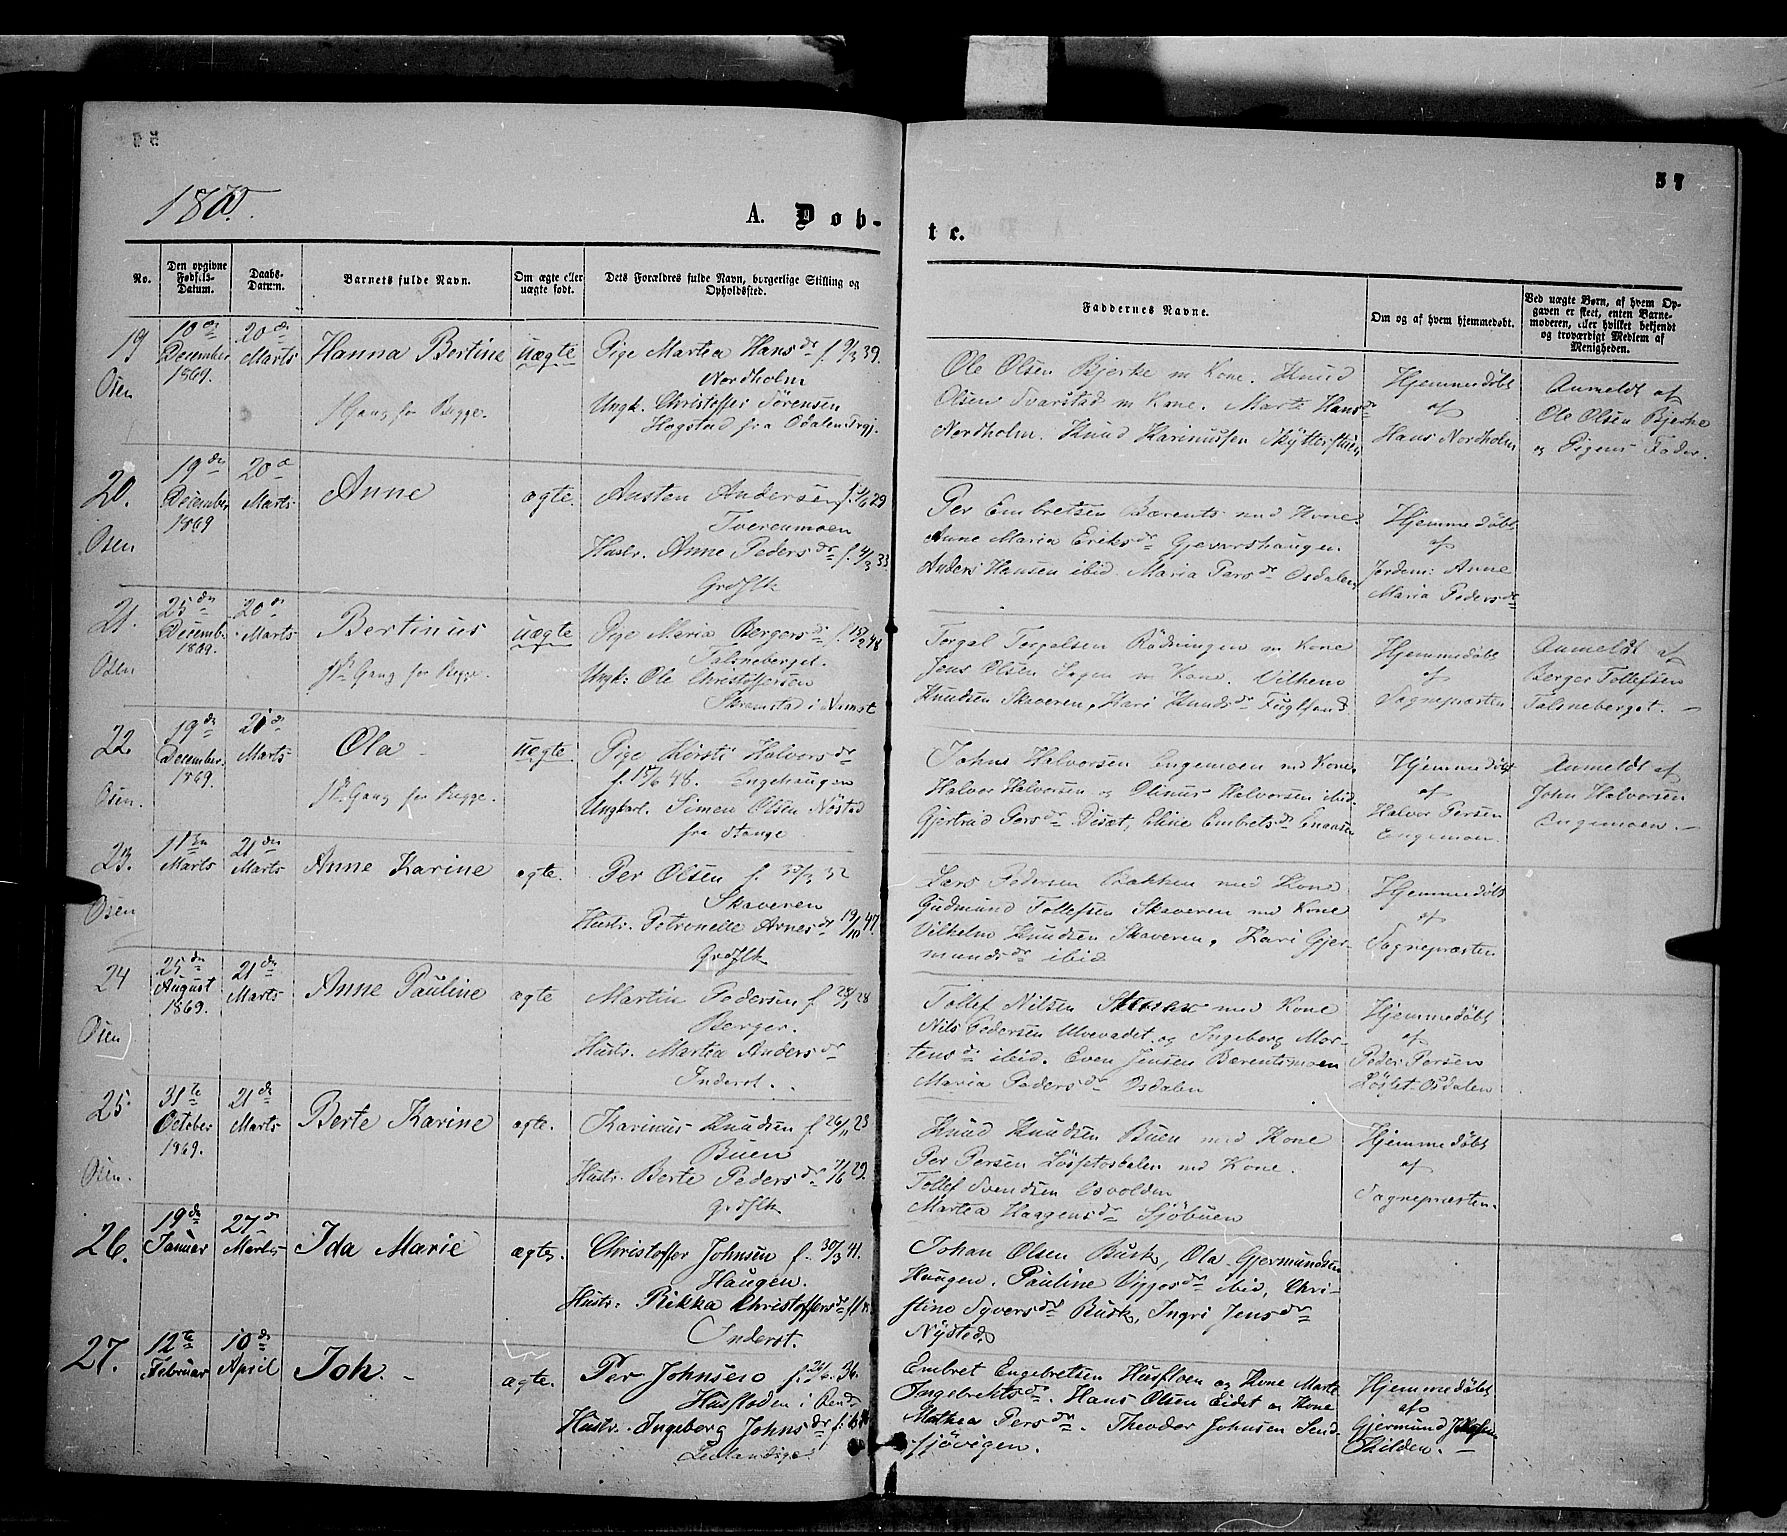 57
1870.
A. Døb-
te.
No.
Den opgivne Fødsels-Datum.
Daabs-Datum.
Barnets fulde Navn.
Om ægte eller uægte født.
Dets Forældres fulde Navn, borgerlige Stilling og Opholdssted.
Faddernes Navne.
Om og af hvem hjemmedøbt.
Ved uægte Børn, af hvem Opgaven er skeet, enten Barnemoderen, eller hvilket bekjendt og troværdigt Medlem af Menigheden.
19 Osen
10de December 1869.
20de Marts
Hanna Bertine
1ste Gang for Begge.
uægte
Pige Martea Hansdr f. 9/3 39.
Nordholm
Ungk. Christoffer Sörensen
Hogstad fra Odalen Prgj.
Ole Olsen Bjerke m Kone. Knud
Olsen Tvarstad m Kone. Marte Hansdr
Nordholm. Knud Karinusen
Hjemmedöbt
af
Hans Nordholm
Anmeldt af
Ole Olsen Bjerke
og Pigens Fader.
20. Osen
19de December 1869
20de Marts
Anne
ægte.
Austen Andersen f. 29
Tverenmoen
Hustr. Anne Pedersdr f. 4/3 33
Grdflk
Per Embretsen Bærents med Kone.
Anne Maria Eriksdr Gjevarshaugen
Anders Hansen ibid. Maria Persdr Osdalen
Hjemmedöbt
af
Jordem: Anne
Maria Pedersdr
21. Osen
25de Decemb. 1869.
20de Marts
Bertinus
1ste Gang for Begge.
uægte
Pige Maria Bergersdr f. 15/2 48
Talsneberget.
Ungk: Ole Christoffersen
Skramstad i Aamot
Torgal Torgalsen Rödningen m Kone
Jens Olsen Sagen m Kone. Vilhelm
Knudsen Skaveren, Kari Knudsdr Fuglsand
Hjemmedöbt
af
Sognepræsten
Anmeldt af
Berger Tollefsen
Talsneberget. –
22. Osen.
19de December 1869.
21de Marts
Ola
1ste Gang for Begge.
uægte
Pige Kersti Halvorsdr
f. 15/6 48. Engehaugen
Ungkarl. Simen Olsen Nöstad
fra Stange
Johns Halvorsen Engemoen med Kone.
Halvor Halvorsen og Olinus Halvorsen ibid.
Gjertrud Persdr Diset, Eline Embretsdr Enaasen
Hjemmedöbt
af
Halvor Persen
Engemoen.
Anmeldt af
John Halvorsen
Engemoen. –
23. Osen
11te Marts
21de Marts
Anne Karine
ægte.
Per Olsen f. 32
Skaveren
Hustr. Petrenelle Arnesdr 19/10 47.
Grdflk
Lars Pedersen Bakken med Kone
Gudmund Tollefsen Skaveren md Kone
Vilhelm Knudsen Skaveren, Kari Gjer-
mundsdr ibid
Hjemmedöbt
af
Sognepræsten
24 Osen
25de August 1869.
21de Marts
Anne Pauline
ægte
Martin Pedersen f. 28
Berger.
Hustr. Martea Andersdr
Inderst.
Tollef Nilsen med Kone
Nils Pedersen Ulvevadet og Ingeborg Mor-
tensdr ibid. Even Jensen Bærentsmoen
Maria Pedersdr Osdalen
Hjemmedöbt
af
Peder Persen
Löslet-Osdalen
25. Osen.
31te October 1869.
21de Marts
Berte Karine
ægte.
Karinus Knudsen f 26/11 23
Buen
Hustr. Berte Pedersdr 7/6 29.
Grdflk
Knud Knudsen Buen med Kone
Per Persen med Kone.
Tollef Svendsen Osvolden
Martea Haagensdr Sjöbuen
Hjemmedöbt
af
Sognepræsten.
26.
19de Januar
27de Marts
Ida Marie
ægte.
Christoffer Johnsen f. 30/3 41.
Haugen.
Hustr: Rikka Christoffersdr
Inderst.
Johan Olsen Busk, Ola Gjermundsen
Haugen. Pauline Viggosdr ibid, Chri-
stine Syversdr Busk, Ingri Jensdr
Nysted
27.
12te Februar
10de April
Joh. –
ægte.
Per Johnsen f. 36.
Husfloden i Rend
Hustr. Ingeborg Johnsdr
Embret Engebretsen Husfloen og Kone Marte
Ingebretsdr. Hans Olsen Eidet og Kone
Mathea Persdr. Theodor Johnsen Send-
sjövigen.
Hjemmedöbt
af
Gjermund
Kilden. –